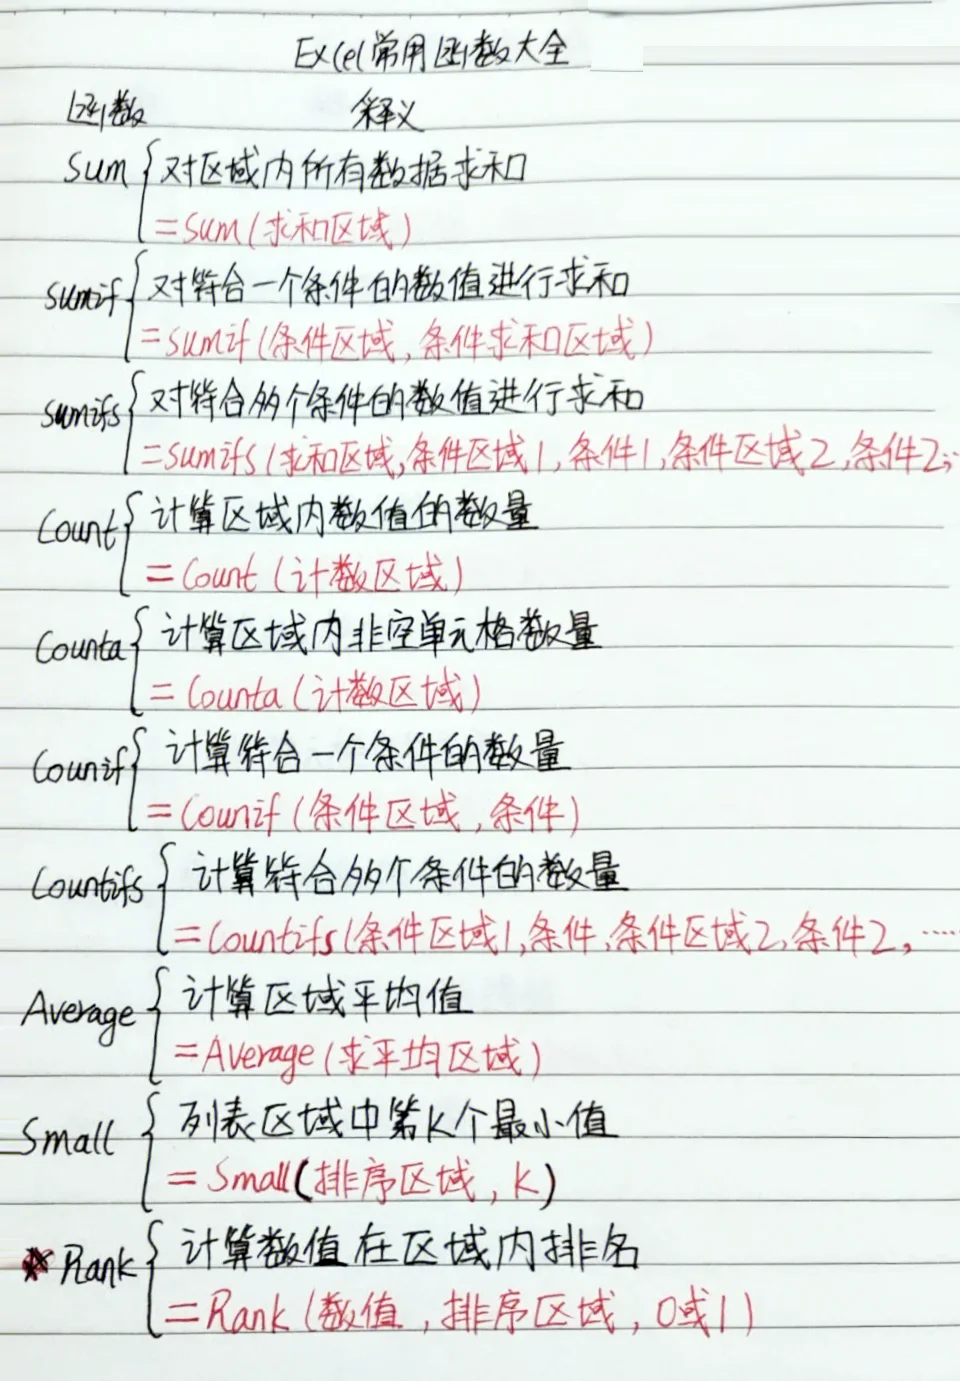 Excel常用函数大全
函数 释义
Sum 对区域内所有数据求和
=Sum(求和区域)
Sumif 对符合一个条件的数值进行求和
=Sumif(条件区域,条件求和区域)
Sumifs 对符合多个条件的数值进行求和
=Sumifs(求和区域,条件区域1,条件1,条件区域2,条件2,…
Count 计算区域内数值的数量
=Count(计数区域)
Counta 计算区域内非空单元格数量
=Counta(计数区域)
Counif 计算符合一个条件的数量
=Counif(条件区域,条件)
Countifs 计算符合多个条件的数量
=Countifs(条件区域1,条件,条件区域2,条件2,……
Average 计算区域平均值
=Average(求平均区域)
Small 列表区域中第K个最小值
=Small(排序区域,K)
Rank 计算数值在区域内排名
=Rank(数值,排序区域,0或1)